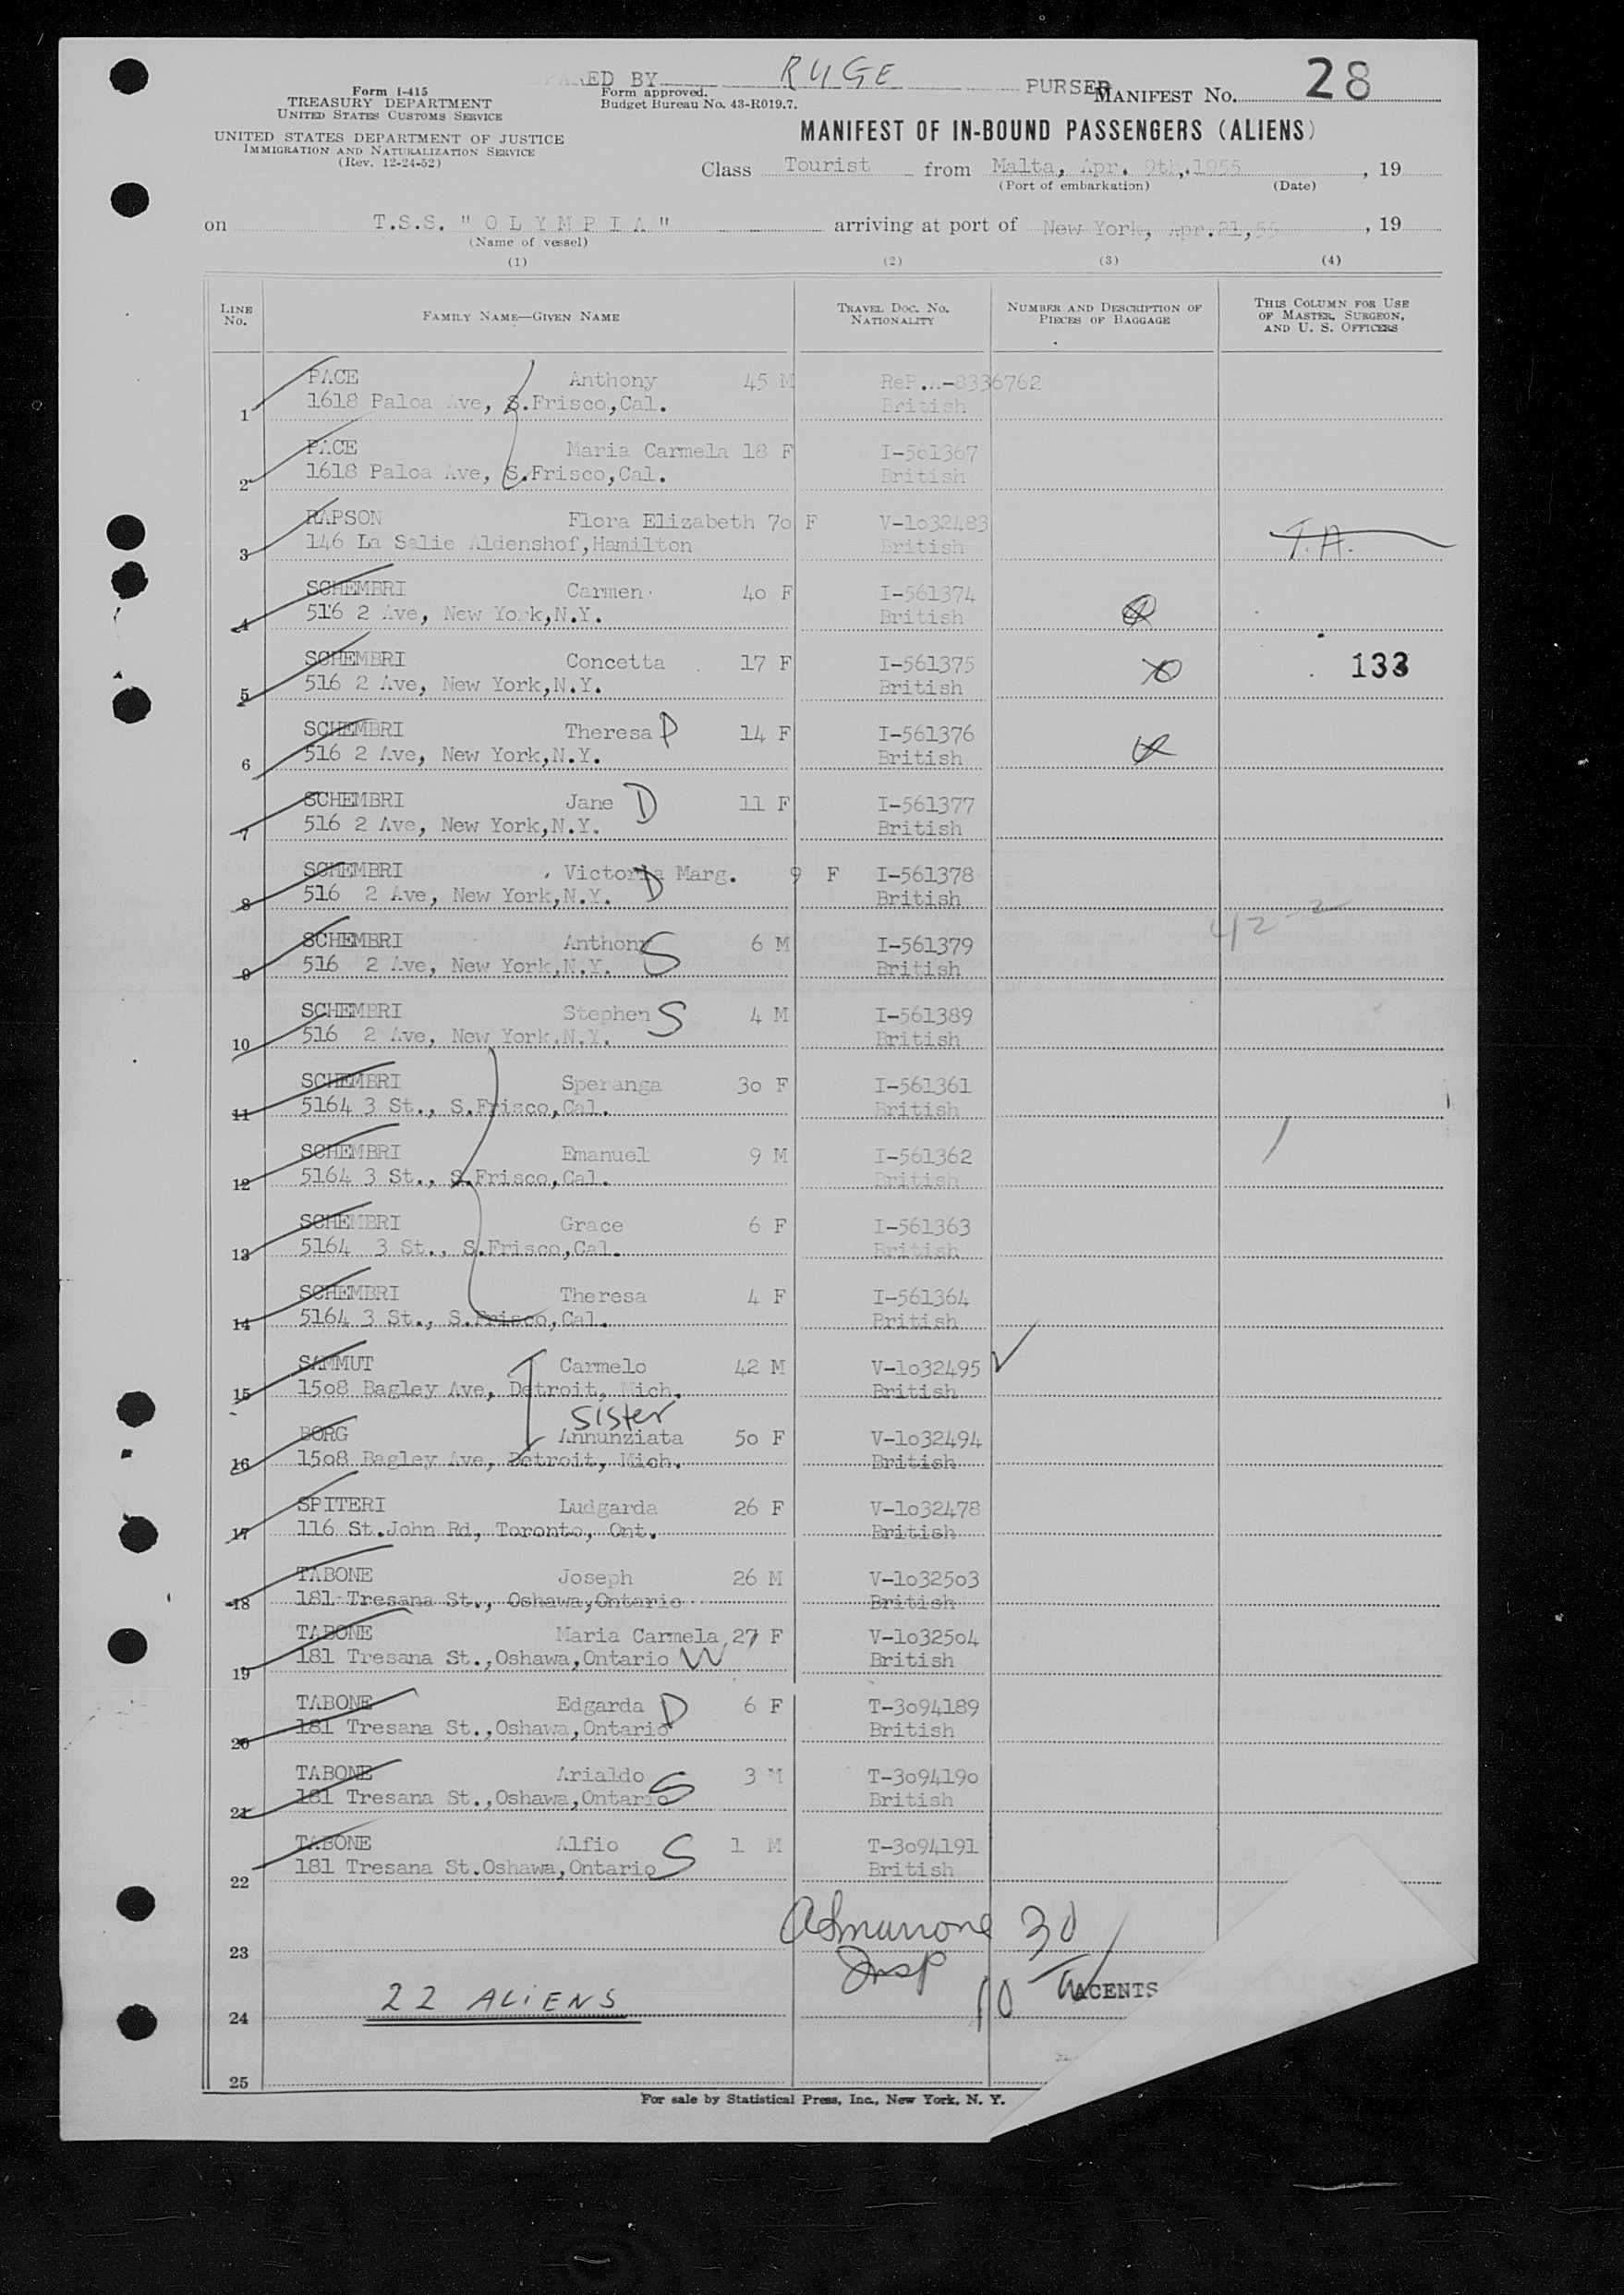 PARED BY RUGE PURSER
Form I-415
TREASURY DEPARTMENT
UNITED STATES CUSTOMS SERVICE
UNITED STATES DEPARTMENT OF JUSTICE
IMMIGRATION AND NATURALIZATION SERVICE
(Rev. 12-24-52)
Form approved.
Budget Bureau No. 43-R019.7.
MANIFEST NO. 28
MANIFEST OF IN-BOUND PASSENGERS (ALIENS)
Class Tourist from Malta, Apr. 9th,.1955, 19
(Port of embarkation) (Date)
on T.S.S. "OLYMPIA" arriving at port of New York, Apr.21,55, 19
(Name of vessel)
(1) (2) (3) (4)
LINE NO. FAMILY NAME—GIVEN NAME TRAVEL DOC. NO. NATIONALITY NUMBER AND DESCRIPTION OF PIECES OF BAGGAGE THIS COLUMN FOR USE OF MASTER, SURGEON, AND U. S. OFFICERS
PACE Anthony 45 M ReP.A-8336762
1 1618 Paloa Ave, S.Frisco,Cal. British
PACE Maria Carmela 18 F I-561367
2 1618 Paloa Ave, S.Frisco,Cal. British
RAPSON Flora Elizabeth 7o F V-1o32483
3 146 La Salie Aldenshof,Hamilton British T.A.
SCHEMBRI Carmen 4o F I-561374
4 516 2 Ave, New York,N.Y. British
SCHEMBRI Concetta 17 F I-561375 133
5 516 2 Ave, New York,N.Y. British
SCHEMBRI Theresa D 14 F I-561376
6 516 2 Ave, New York,N.Y. British
SCHEMBRI Jane D 11 F I-561377
7 516 2 Ave, New York,N.Y. British
SCHEMBRI Victoria Marg. 9 F I-561378
8 516 2 Ave, New York,N.Y. D British
42-2
SCHEMBRI Anthony 6 M I-561379
9 516 2 Ave, New York,N.Y. S British
SCHEMBRI Stephen S 4 M I-561389
10 516 2 Ave, New York,N.Y. British
SCHEMBRI Speranga 3o F I-561361
11 5164 3 St., S.Frisco,Cal. British
SCHEMBRI Emanuel 9 M I-561362
12 5164 3 St., S.Frisco,Cal. British
SCHEMBRI Grace 6 F I-561363
13 5164 3 St., S.Frisco,Cal. British
SCHEMBRI Theresa 4 F I-561364
14 5164 3 St., S.Frisco,Cal. British
SAMMUT Carmelo 42 M V-1o32495
15 15o8 Bagley Ave, Detroit, Mich. British
sister
BORG Annunziata 5o F V-1o32494
16 15o8 Bagley Ave, Detroit, Mich. British
SPITERI Ludgarda 26 F V-1o32478
17 116 St.John Rd, Toronto, Ont. British
TABONE Joseph 26 M V-1o325o3
18 181 Tresana St., Oshawa,Ontario British
TABONE Maria Carmela 27 F V-1o325o4
19 181 Tresana St.,Oshawa,Ontario W British
TABONE Edgarda D 6 F T-3o94189
20 181 Tresana St.,Oshawa,Ontario British
TABONE Arialdo 3 M T-3o9419o
21 181 Tresana St.,Oshawa,Ontario S British
TABONE Alfio S 1 M T-3o94191
22 181 Tresana St.Oshawa,Ontario British
23
Insp
ACENTS
24 22 ALiENS
25
For sale by Statistical Press, Inc., New York, N. Y.